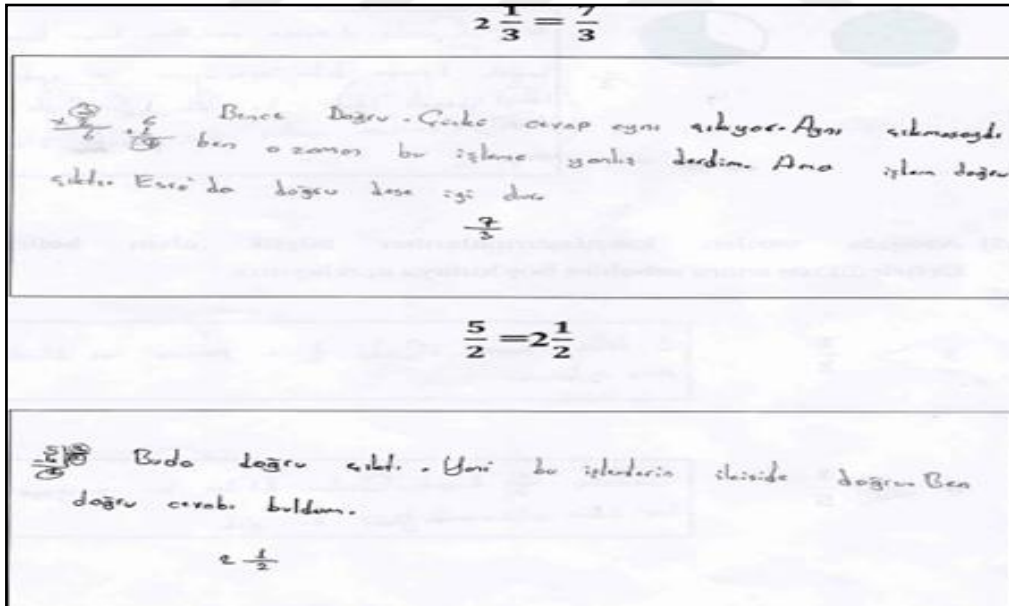 2 1/3 = 7/3
x 3 2 6 + 6 1 7 Bence Doğru. Çünkü cevap aynı çıkıyor. Aynı çıkmasaydı
ben o zaman bu işleme yanlış derdim. Ama işlem doğru
çıktı. Esra'da doğru dese iyi
7/3
5/2 = 2 1/2
Buda doğru çıktı. Yani bu işlemlerin ikiside doğru. Ben
doğru cevabı buldum.
2 1/2